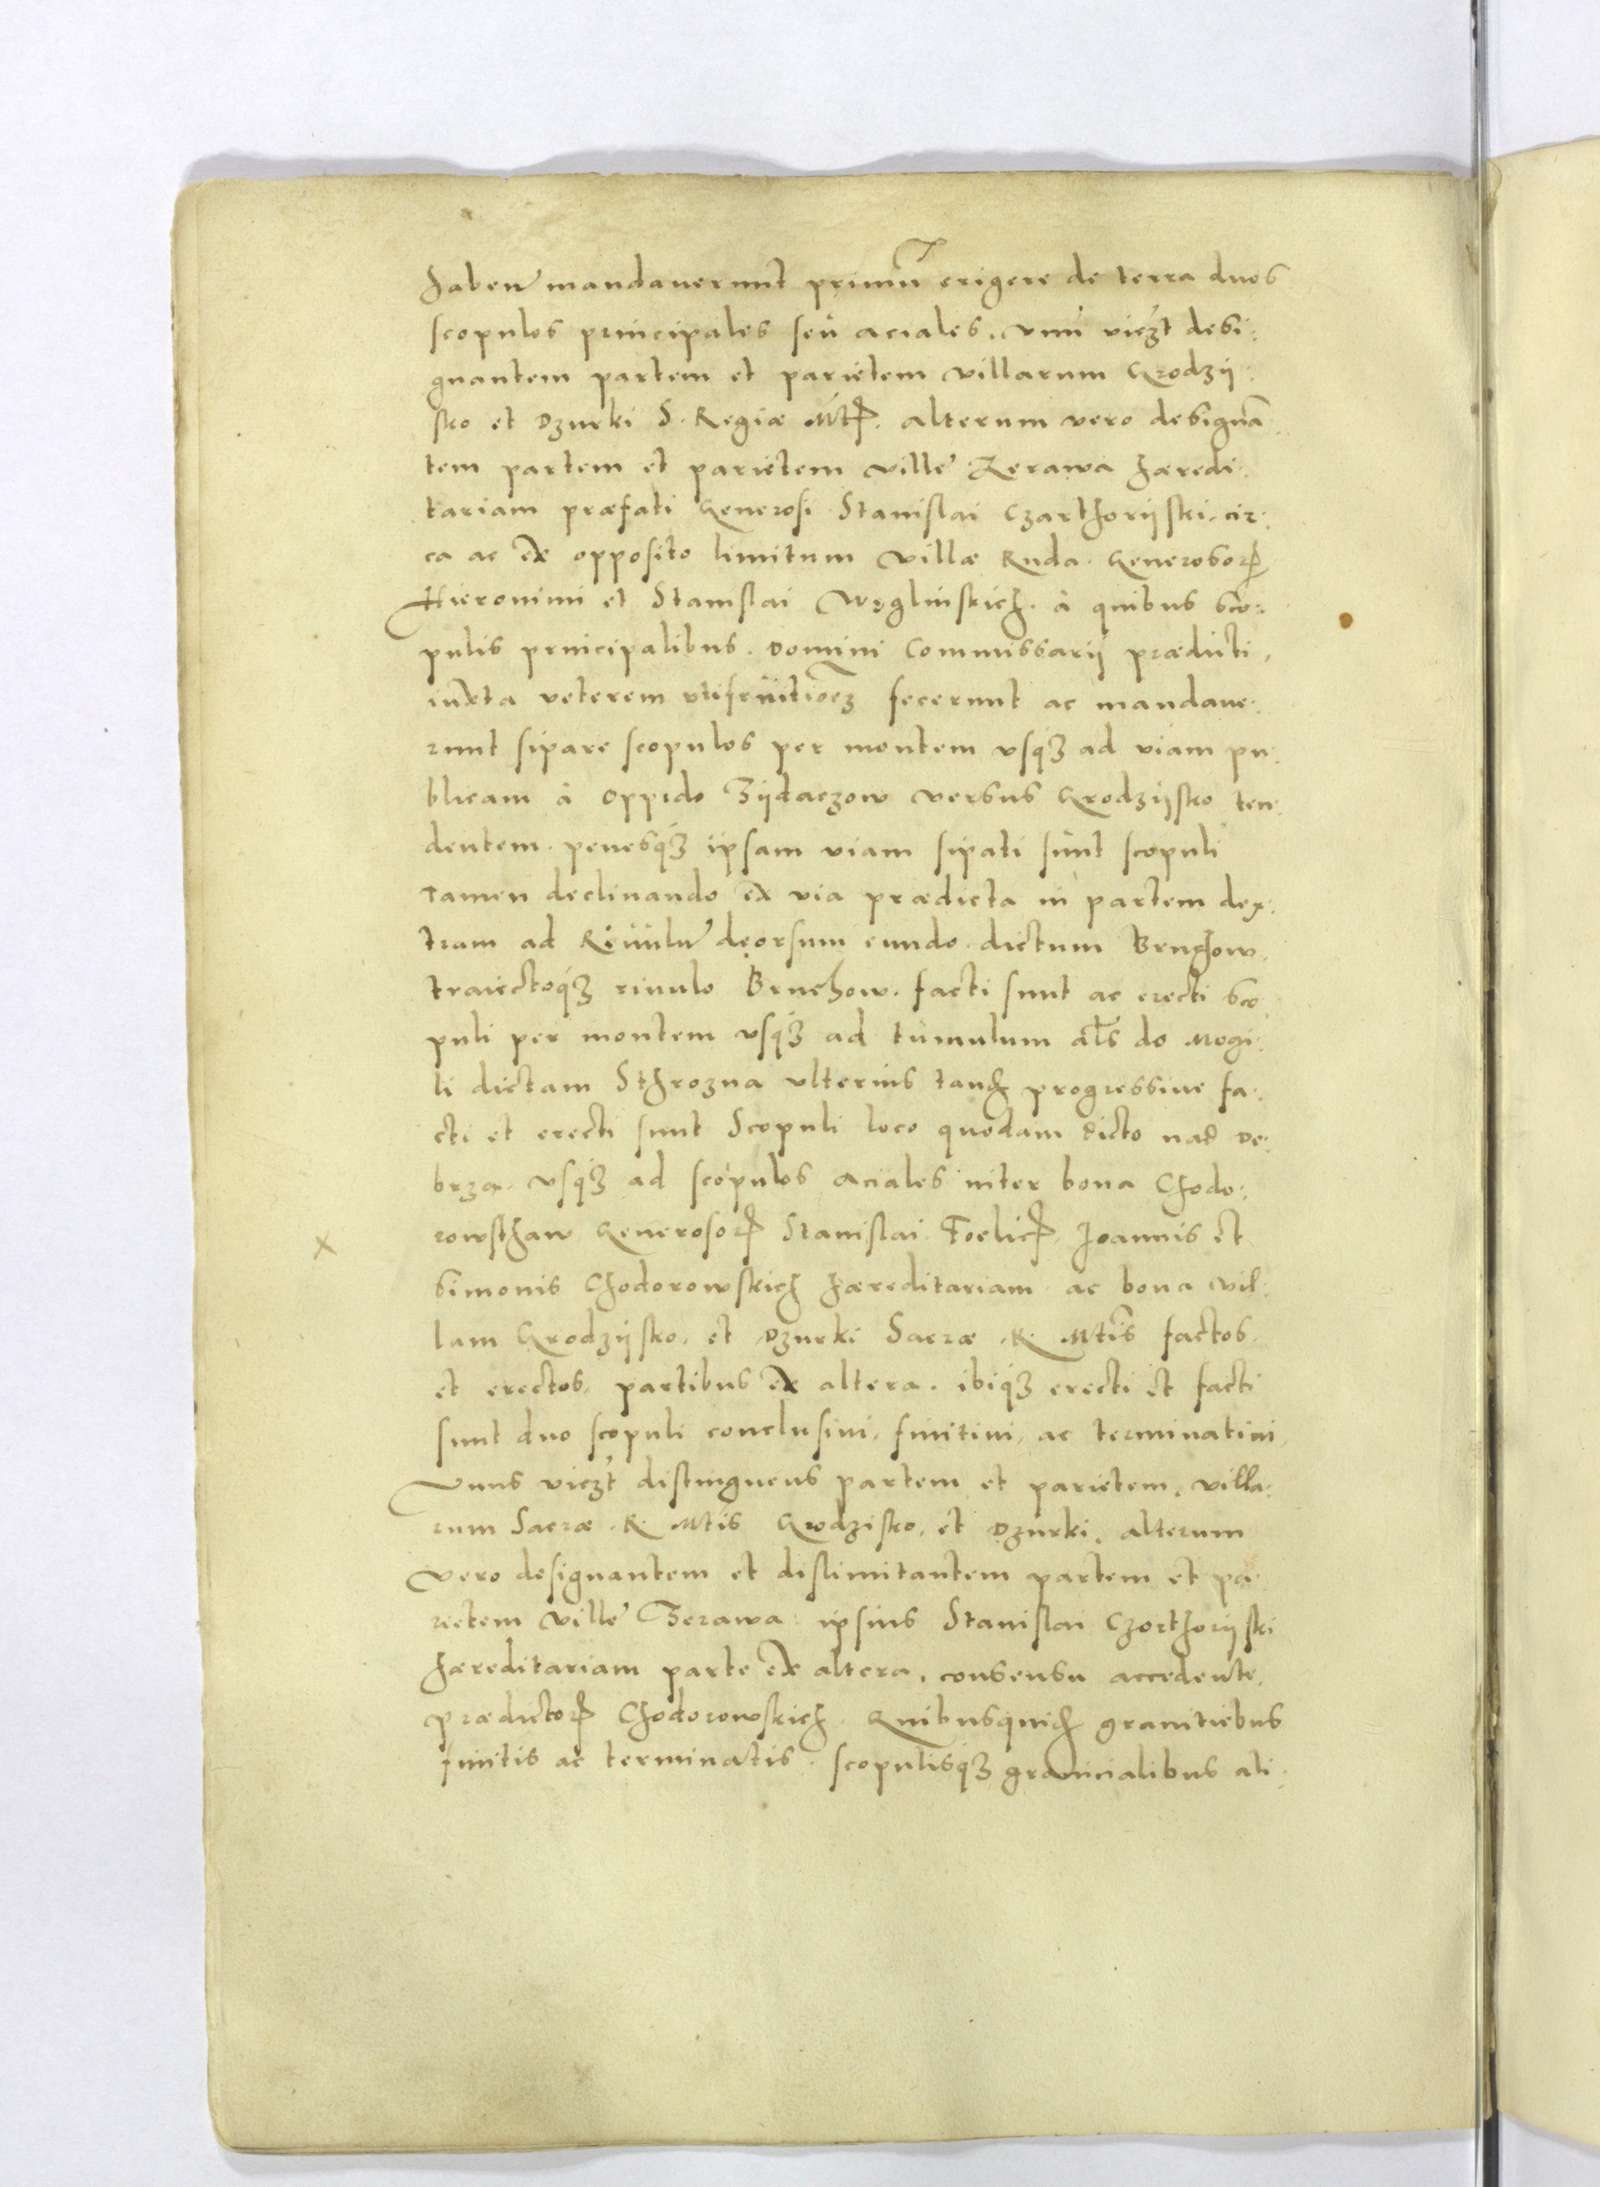 haben mandauerunt primũ erigere de terra duos
scopulos principales seu aciales, vnũ viczt desi:
gnantem partem et parietem villarum Grodzij:
sko et Dzurki S. Regiæ Mtꝭ. alterum vero designã
tem partem et parietem ville Zerawa hæredi:
tariam præfati Generosi Stanislai Czarthorijski, cir:
ca ac ex opposito limitum villæ Ruda Generosoꝝ
Hieronimi et Stanislai Węglinskich. à quibus sco:
pulis principalibus. Domini Commissarij prædicti,
iuxta veterem vtifruitioẽ fecerunt ac mandaue:
runt sipare scopulos per montem vsqꝫ ad viam pu:
blicam à oppido Zijdaczow versus Grodzijsko ten:
dentem. penesqꝫ ipsam viam sipati sunt scopuli
tamen declinando ex via prædicta in partem dex:
tram ad Riuulũ deorsum eundo dictum Bruchow,
traiectoqꝫ riuulo Bruchow. facti sunt ac erecti sco
puli per montem vsqꝫ ad tumulum als do Mogi:
li dictam Sthrozna vlterius tandẽ progressiue fa:
cti et erecti sunt Scopuli loco quodam dicto nad De:
brza. vsqꝫ ad scopulos aciales inter bona Chodo:
rowsthaw Generosoꝝ Stanislai Foelicꝭ, Joannis et
Simonis Chodorowskich hæreditariam ac bona vil:
lam Grodzijsko, et Dzurki Sacræ R. Mtis factos
et erectos, partibus ex altera. ibiqꝫ erecti et facti
sunt duo scopuli conclusiui, finitiui, ac terminatiui,
Vnus viczt distinguens partem et parietem, villa:
rum Sacræ R. Mtis Grodzisko, et Dzurki, alterum
vero designantem et dislimitantem partem et pa
rietem ville Zerawa ipsius Stanislai Czorthorijski
hæreditariam parte ex altera, consensu accedente,
prædictoꝝ Chodorowskich. Quibusquidẽ granitiebus
finitis ac terminatis. scopulisqꝫ granicialibus ali:
x